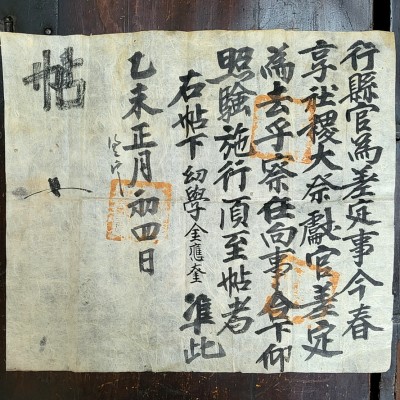 行縣官為差定事今春
享社稷大祭獻官差定
為去乎察任向事合下仰
照驗施行須至帖者
右帖下幼學金應奎 準此
乙未正月初四日
帖